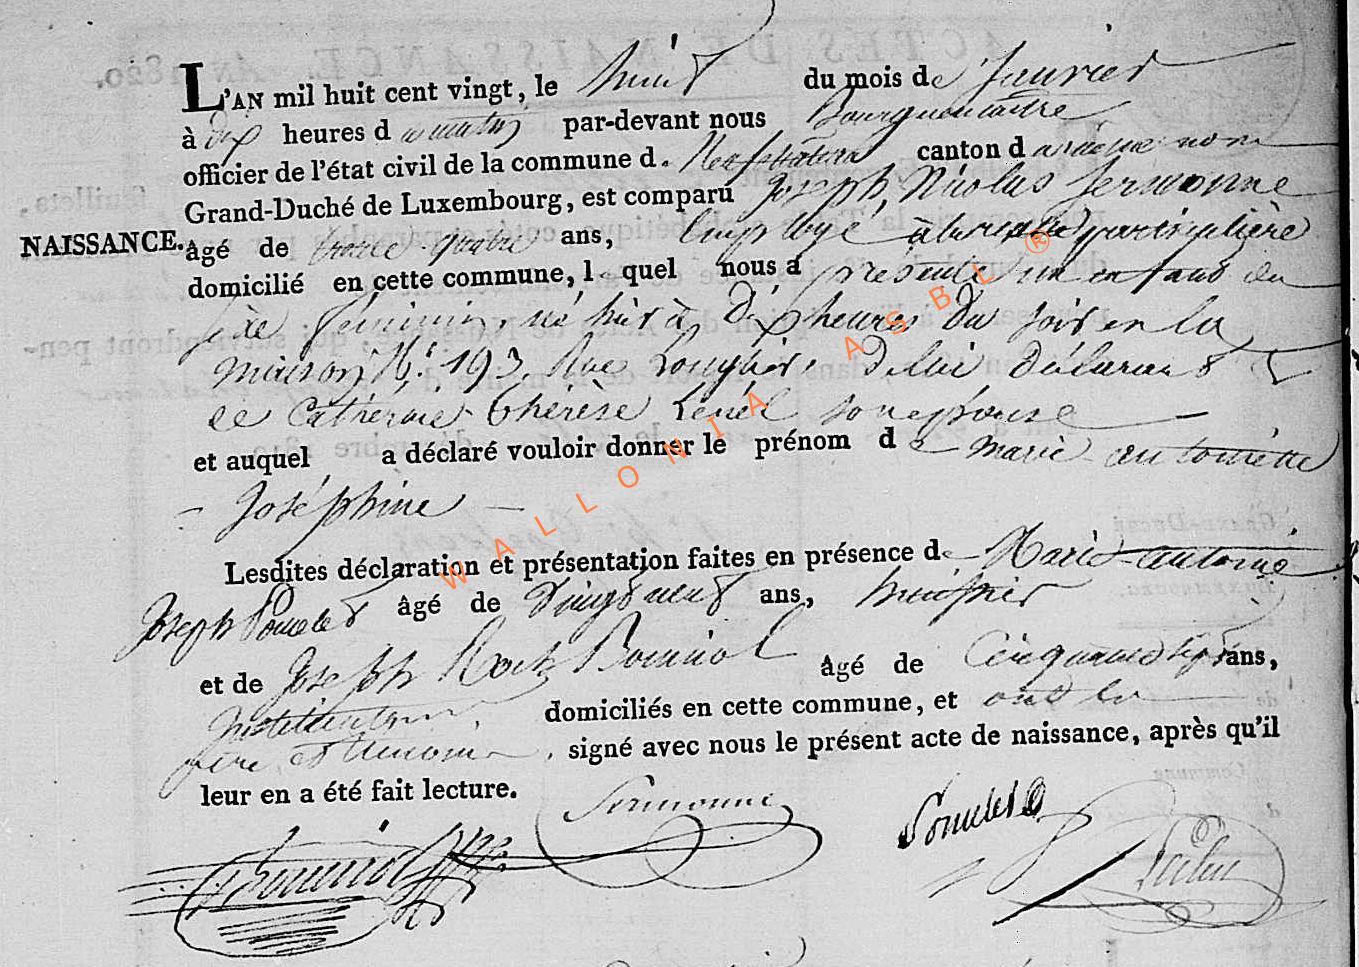 L'AN mil huit cent vingt, le huit du mois de janvier
à dix heures d u matin par-devant nous Bourguemaitre
officier de l'état civil de la commune d. Neufchateau canton d
Grand-Duché de Luxembourg, est comparu Joseph, Nicolas Sermonne
NAISSANCE. âgé de trente-quatre ans, Employé
domicilié en cette commune, l e quel nous a présenté un enfant du
sexe féminin, né hier à Dix heures Du soir en la
maison N° 193, Rue De lui Déclarant &
de Catherine Thérèse son epouse
et auquel a déclaré vouloir donner le prénom d e marie antoinette
- Joséphine -
Lesdites déclaration et présentation faites en présence de Marie-antoine
Joseph Poncelet âgé de vingt neuf ans, huissier
et de Joseph Roch âgé de Cinquante sept ans,
instituteur, domiciliés en cette commune, et ont les
père et temoins, signé avec nous le présent acte de naissance, après qu'il
leur en a été fait lecture.
Sermonne Poncelet
WALLONIA ASBL ®